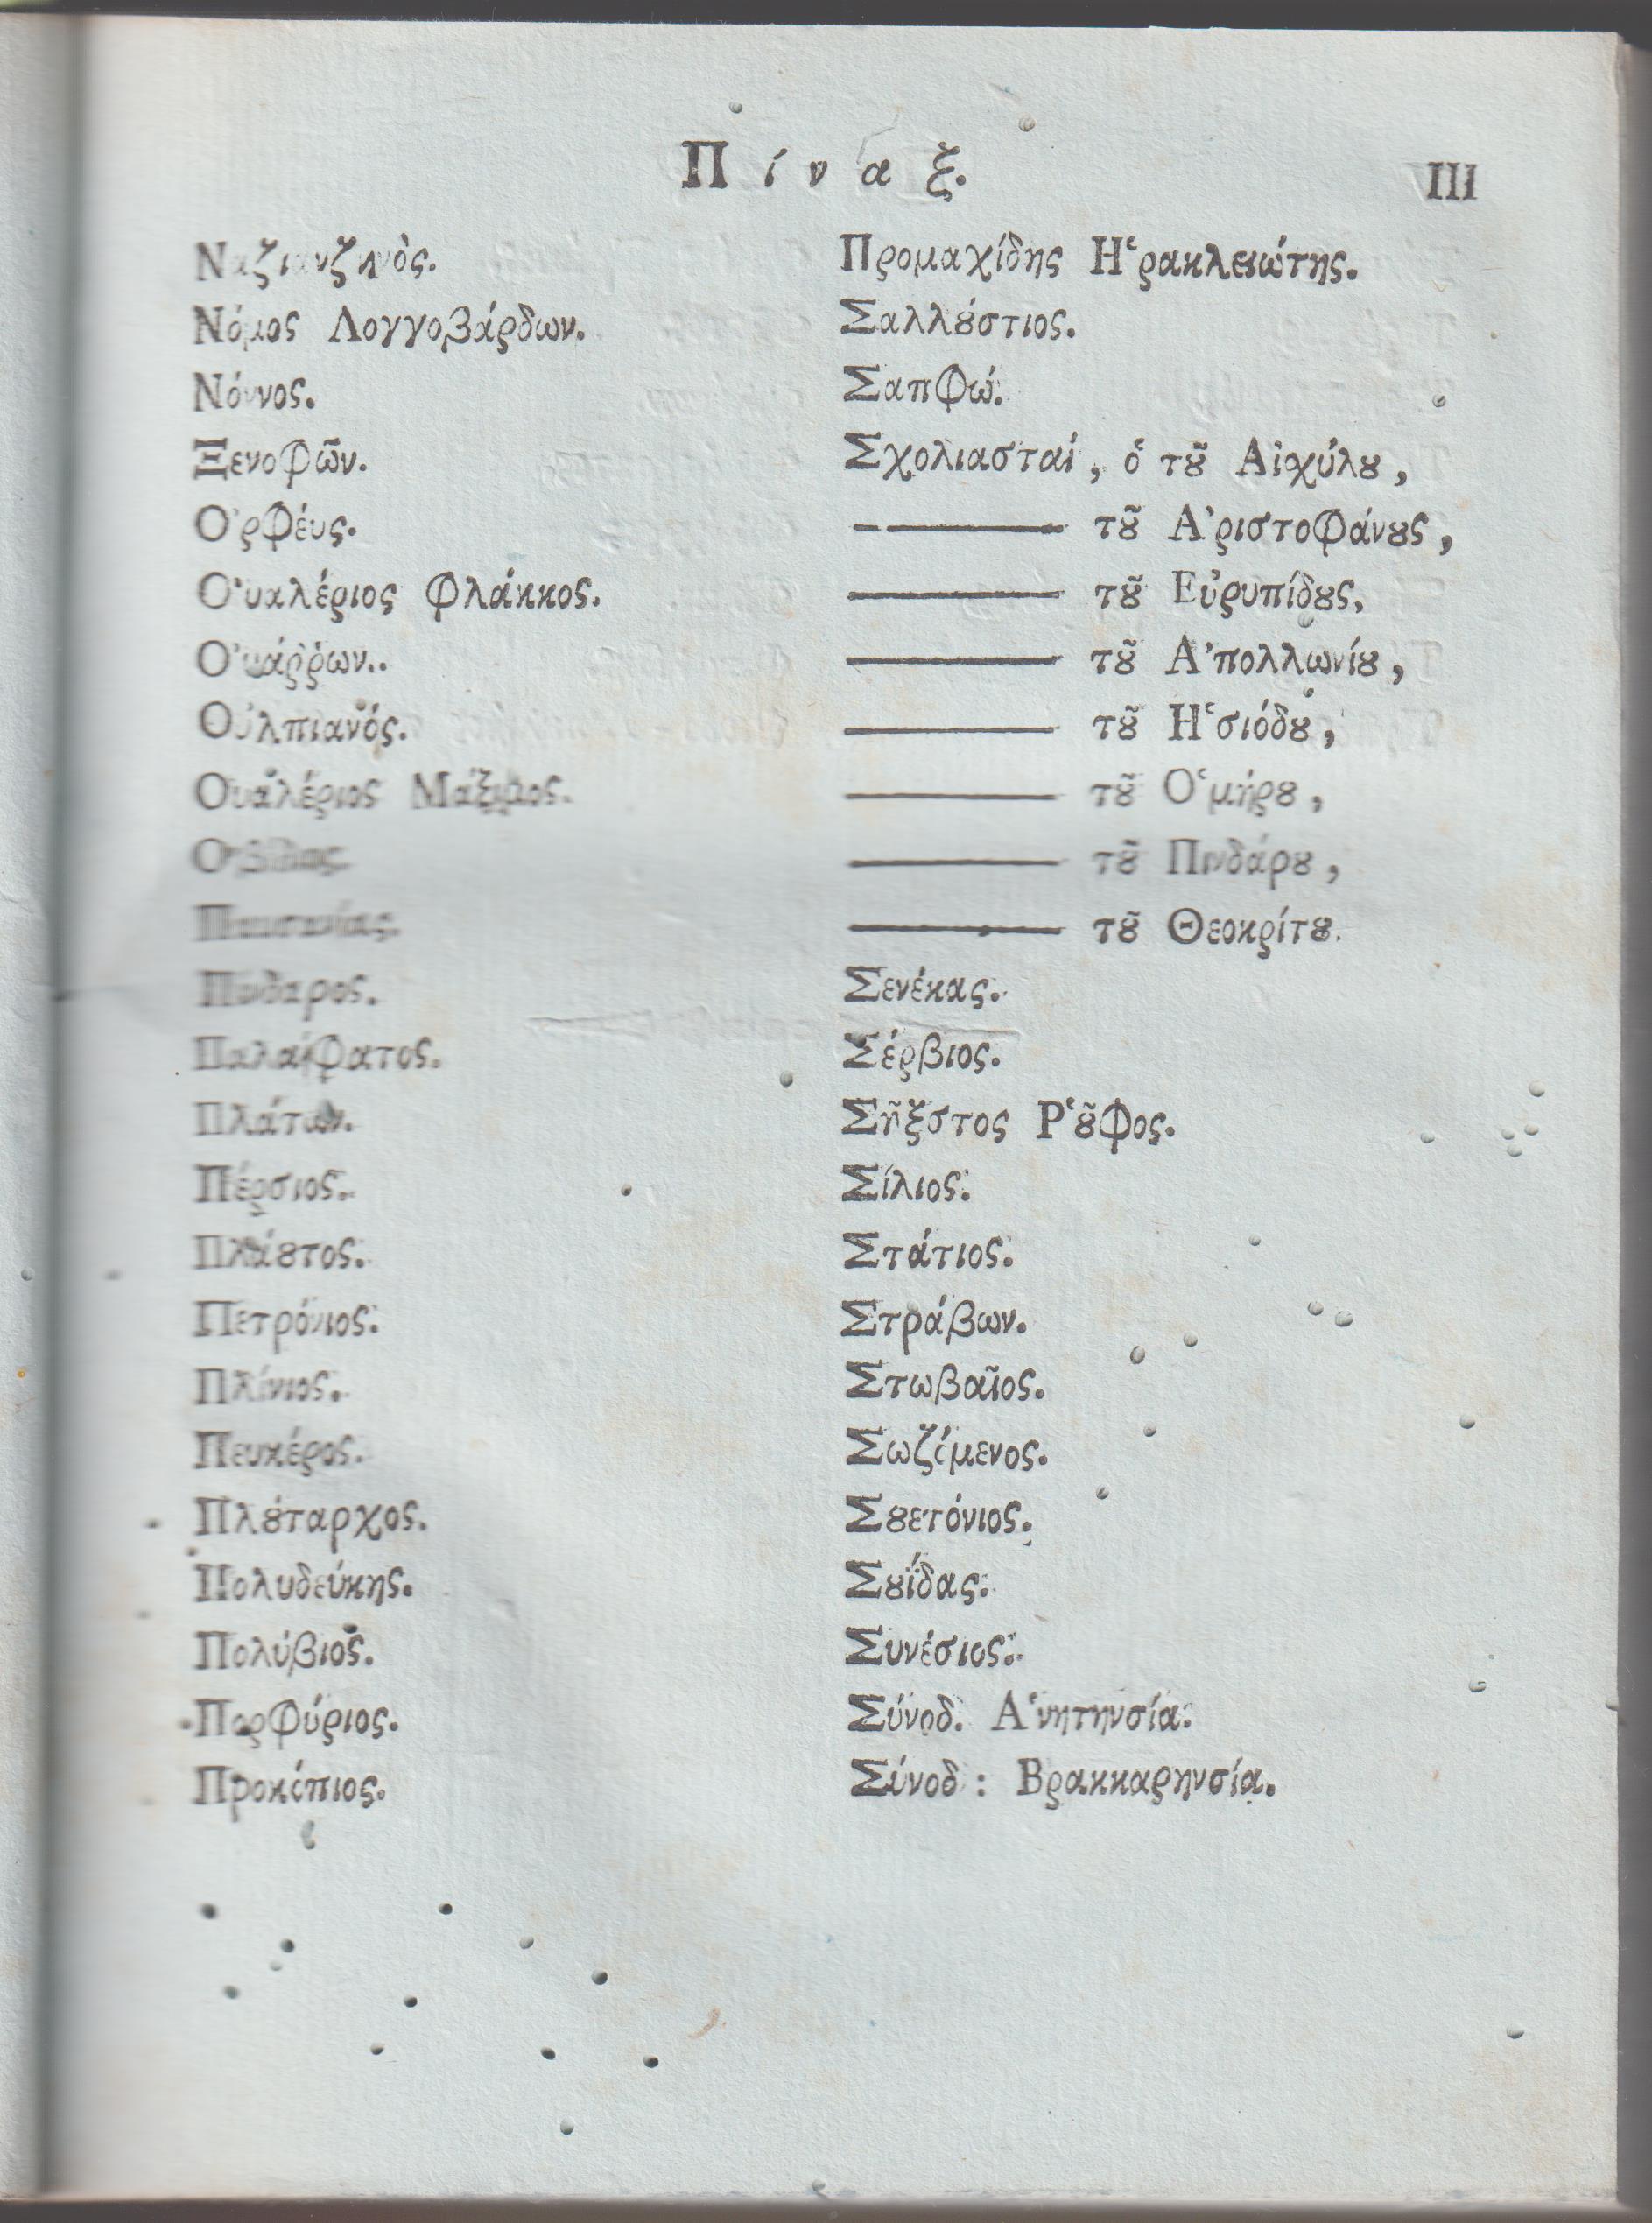 Πίναξ.
III
Ναζιανζηνὸς.
Νόμος Λογγοβάρδων.
Νόννος.
Ξενοφῶν.
Ο᾿ρφέυς.
Ο᾿υαλέριος Φλάκκος.
Ο᾿υάῤῥων.
Οὐλπιανός.
Ουαλέριος Μάξιμος.
Πίνδαρος.
Παλαίφατος.
Πλάτων.
Πέρσιος.
Πλάȣτος.
Πετρόνιος.
Πλίνιος.
Πευκέρος.
Πλȣ́ταρχος.
Πολυδεύκης.
Πολύβιος.
Πορφύριος.
Προκόπιος.
Προμαχίδης Η῾ρακλειώτης.
Σαλλȣ́στιος.
Σαπφώ.
Σχολιασταί, ὁ τȣ͂ Αἰχύλȣ,
—— τȣ͂ Α᾿ριστοφάνȣς,
—— τȣ͂ Εὐρυπίδȣς,
—— τȣ͂ Α᾿πολλωνίȣ,
—— τȣ͂ Η῾σιόδȣ,
—— τȣ͂ Ο῾μήρȣ,
—— τȣ͂ Πινδάρȣ,
—— τȣ͂ Θεοκρίτȣ.
Σενέκας.
Σέρβιος.
Σῆξστος Ρ῾ȣ͂φος.
Σίλιος.
Στάτιος.
Στράβων.
Στωβαῖος.
Σωζόμενος.
Σȣετόνιος.
Σȣΐδας.
Συνέσιος.
Σύνοδ. Α῾νητηνσία.
Σύνοδ: Βρακκαρηνσία.